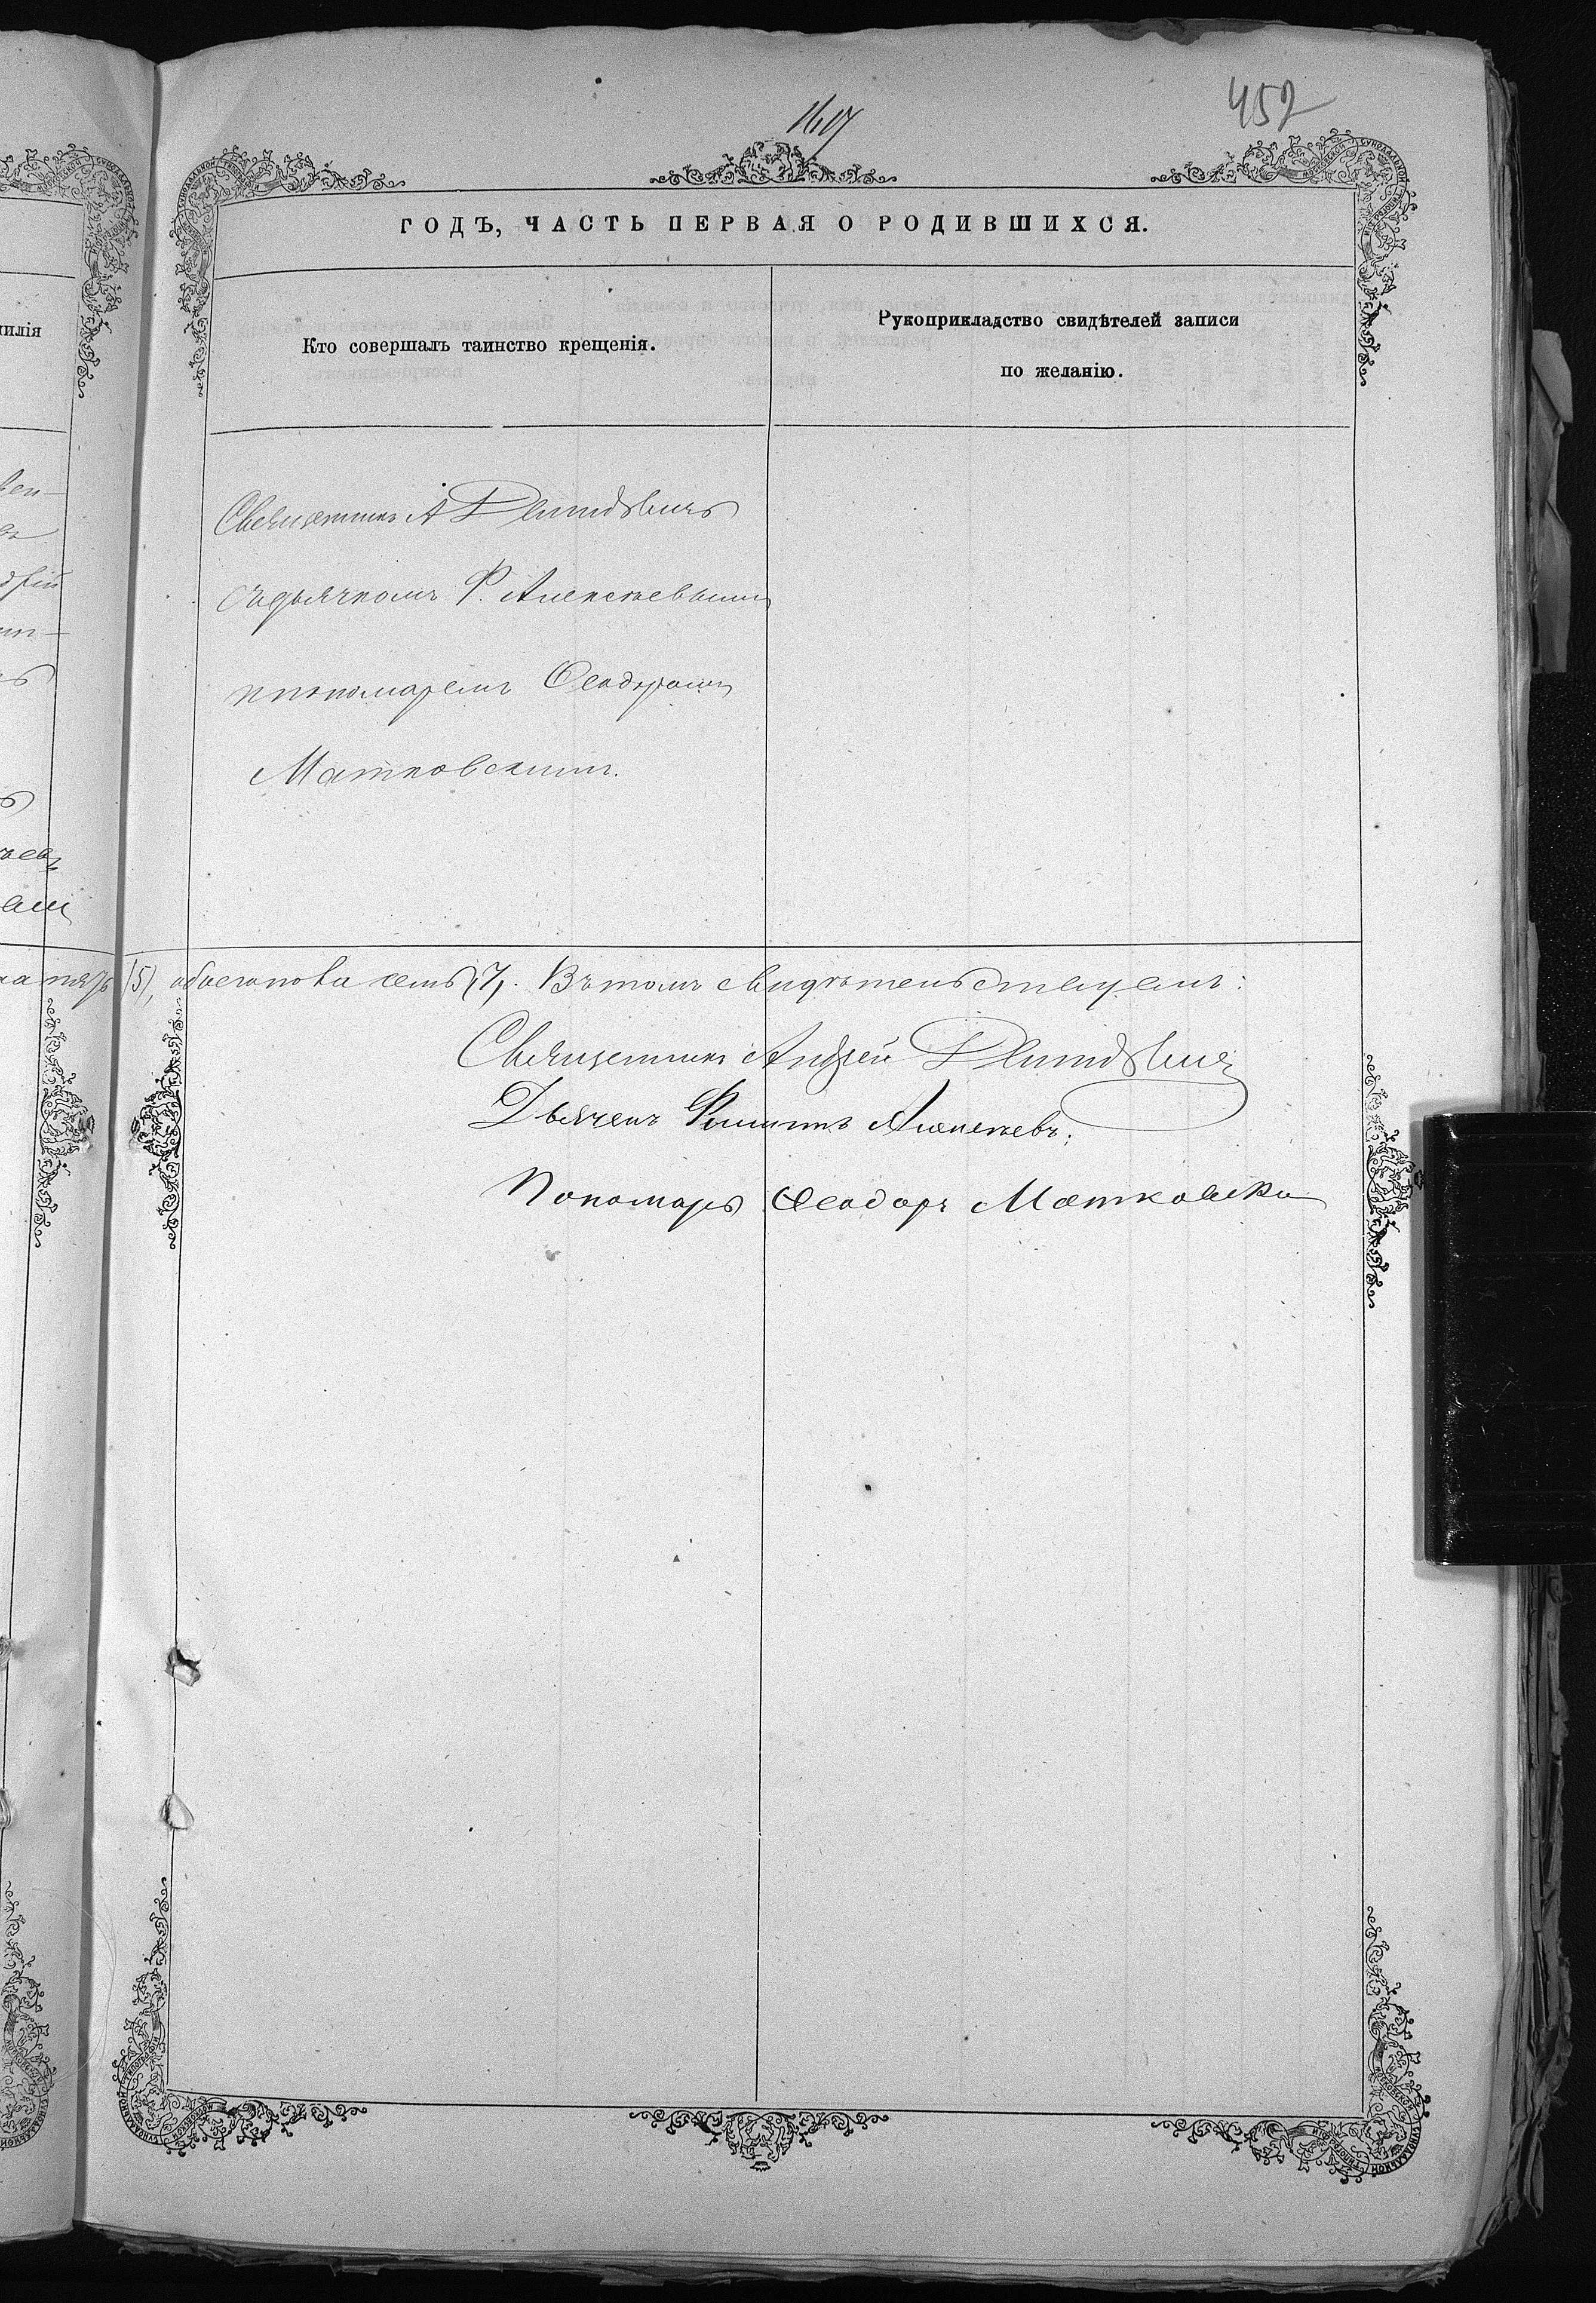 452
ГОДЪ, ЧАСТЬ ПЕРВАЯ О РОДИВШИХСЯ.
Кто совершалъ таинство крещенія.
Рукоприкладство свидѣтелей записи
по желанію.
Священникъ А
съ дьячкомъ Ф. Алексѣевымъ
и пономаремъ Ѳеодоромъ
Матковскимъ.
(5), обоего пола семь (7). Въ томъ свидѣтельствуемъ:
Священникъ Андрей
Дьячекъ Филиппъ Алексѣевъ.
Пономарь Ѳеодоръ Матковски